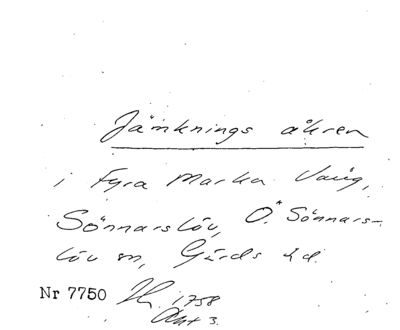 Jämknings åkren
i Fyra Marka Vång,
Sönnarslöv, Ö. Sönnars-
löv sn, Gärds hd.
Nr 7750 1758
Akt 3.